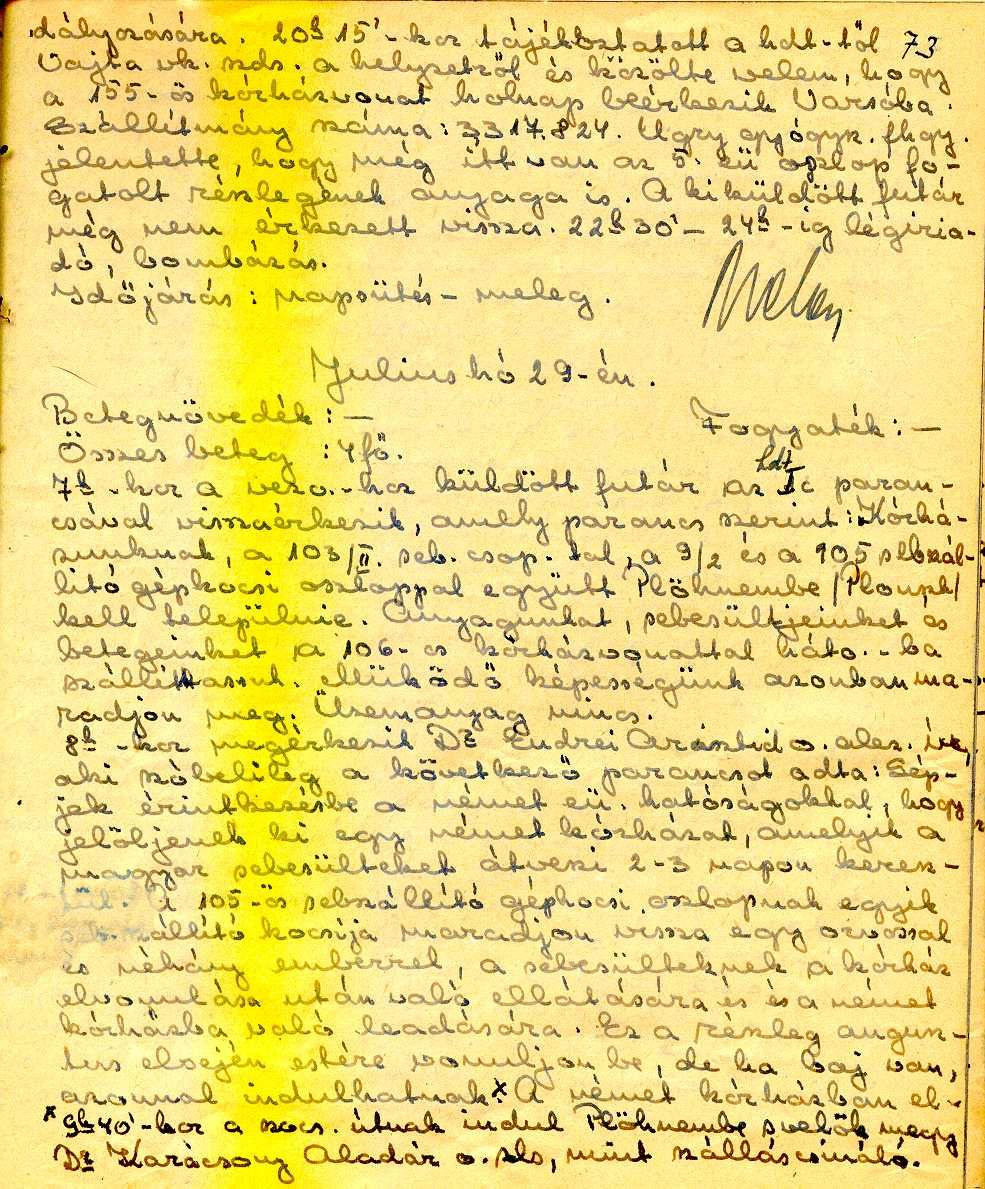 dályozására. 20h 15'-kor tájékoztatott a hdt-től 73
Vajta vk. szds. a helyzetről és közölte velem, hogy
a 155-ös kórházvonat holnap beérkezik Varsóba.
Szállítmány száma: 3317.824. Ugry gyógyk. fhgy.
jelentette, hogy még itt van az 5. eü oszlop fo-
gatolt részlegének anyaga is. A kiküldött futár
még nem érkezett vissza. 22h 30'- 24h-ig légiria-
dó, bombázás.
Időjárás: napsütés - meleg.
Julius hó 29-én.
Betegnövedék: — Fogyaték: —
Összes beteg : 4 fő.
7h-kor a hoz küldött futár az hdt Ic paran-
csával visszaérkezik, amely parancs szerint: Kórhá-
zunknak, a 103/II. seb. csop.-tal, a 9/2 és a 105 sebszál-
lító gépkocsi oszloppal együtt Plöhnembe
kell települnie. Anyagunkat, sebesültjeinket és
betegeinket a 106-os kórházvonattal háto.-ba
szállíttassuk. Müködő képességünk azonban ma-
radjon meg. Üzemanyag nincs.
8h-kor megérkezik Dr Endrei Arisztid o. alez. úr,
aki szóbelileg a következő parancsot adta: Lép-
jek érintkezésbe a német eü. hatóságokkal, hogy
jelöljenek ki egy német kórházat, amelyik a
magyar sebesülteket átveszi 2-3 napon keresz-
tül. A 105-ös sebszállító gépkocsi oszlopnak egyik
seb. szállító kocsija maradjon vissza egy orvossal
és néhány emberrel, a sebesülteknek a kórház
elvonulása után való ellátására és és a német
kórházba való leadására. Ez a részleg augusz-
tus elsején estére vonuljon be, de ha baj van,
azonnal indulhatnak. x A német kórházban el-
x 9h 40'-kor a kocs. útnak indul Plöhnembe s velök megy
Dr Karácsony Aladár o. szls, mint szálláscsináló.